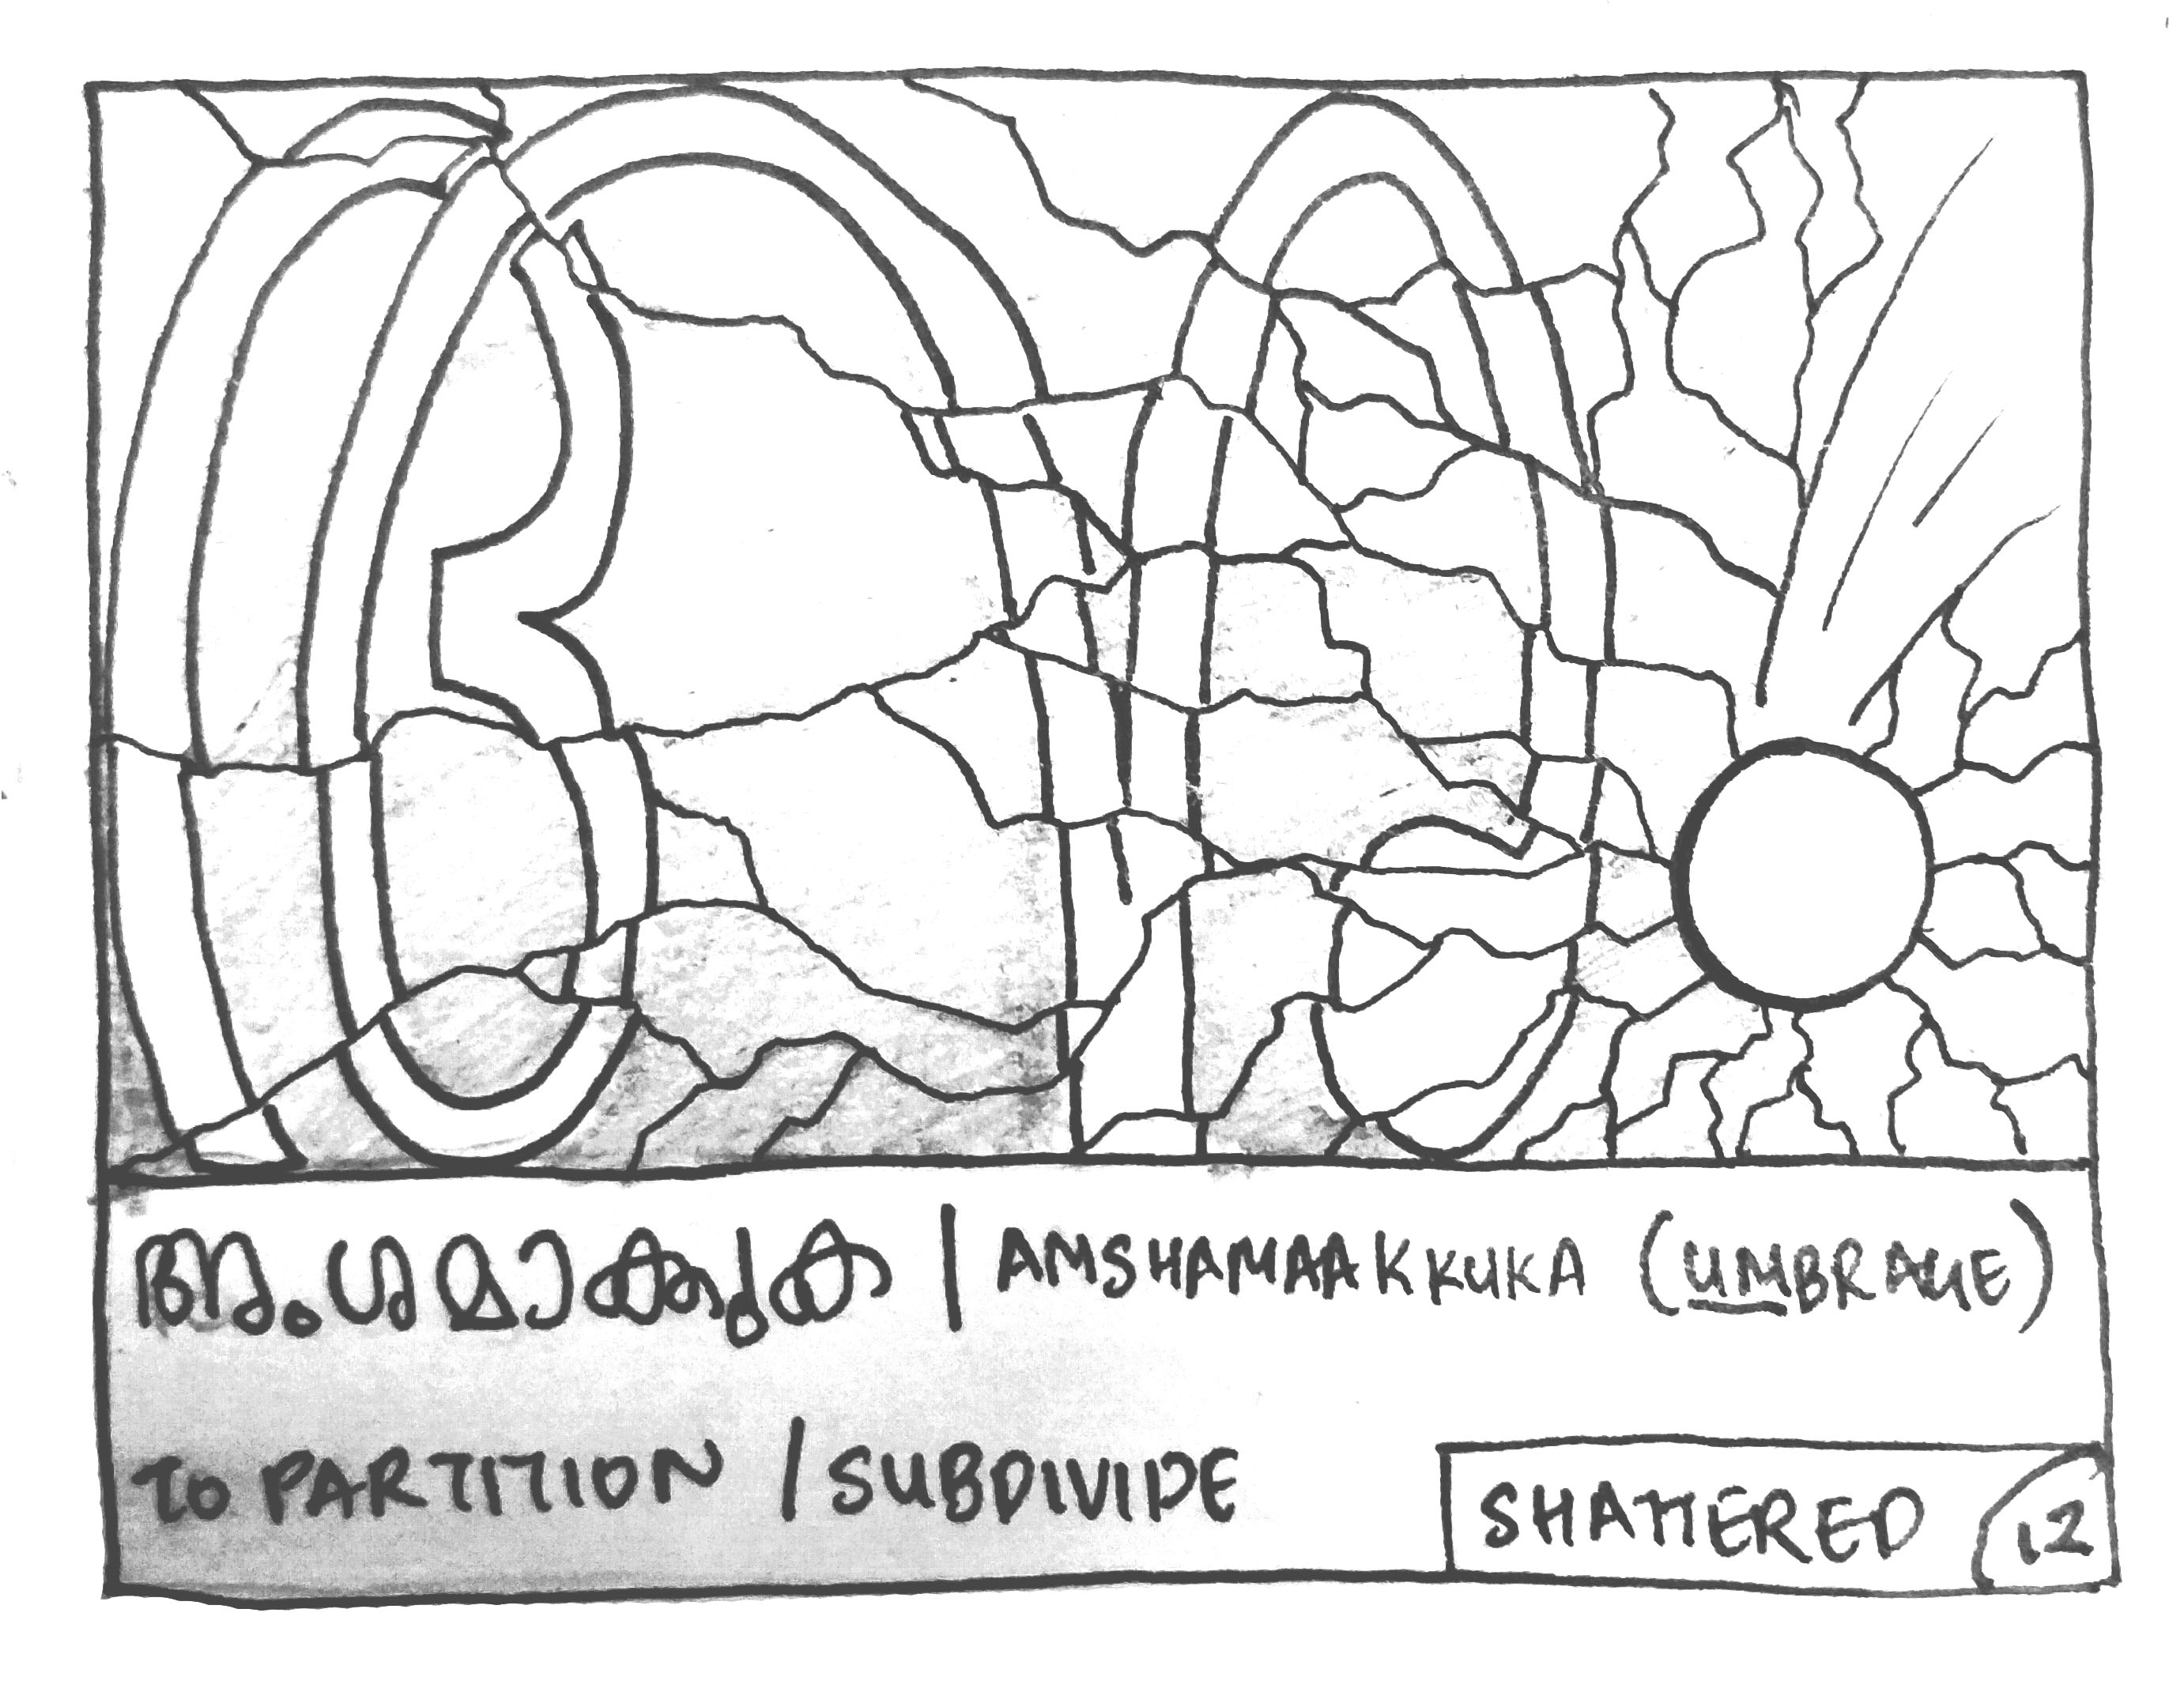 അം
അംശമാക്കുക | AMSHAMAAKKUKA
TO PARTITION / SUBDIVIDE
SHATTERED 12